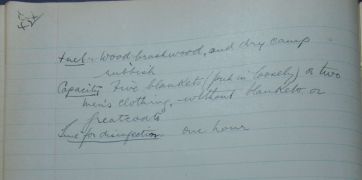 Fuel - Wood, brushwood, and dry camp
rubbish
Capacity Five blankets (put in loosely) or two
men's clothing, without blankets, or
greatcoats
Time for disinfection one hour